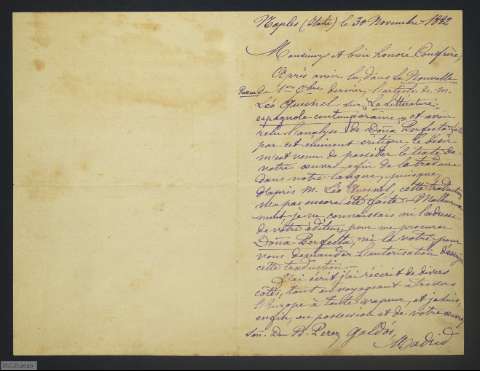 Naples (Italie) le 30 Novembre 1882
Monsieur et bien honoré Confrère,
Après avoir lu, dans la Nouvelle
Revue du 1er Obre dernier, l'article de M.
Léo Quesnel sur La Littérature
espagnole contemporaine, et avoir
relu l'analyse de Doña Perfecta
par cet éminent critique, le désir
m'est venu de posséder le texte de
votre œuvre, afin de la traduire
dans notre langue, puisque,
d'après M. Léo Quesnel, cette traduction
n'a pas encore été faite. Malheureuse-
ment je ne connaissais ni l'adresse
de votre éditeur, pour me procurer
Doña Perfecta, ni la votre pour
vous demander l'autorisation de
cette traduction.
J'ai écrit, j'ai récrit de divers
côtés, tout en voyageant à travers
l'Europe à toute vapeur, et je suis,
enfin, en possession et de votre
Dn B. Perez Galdós,
Madrid